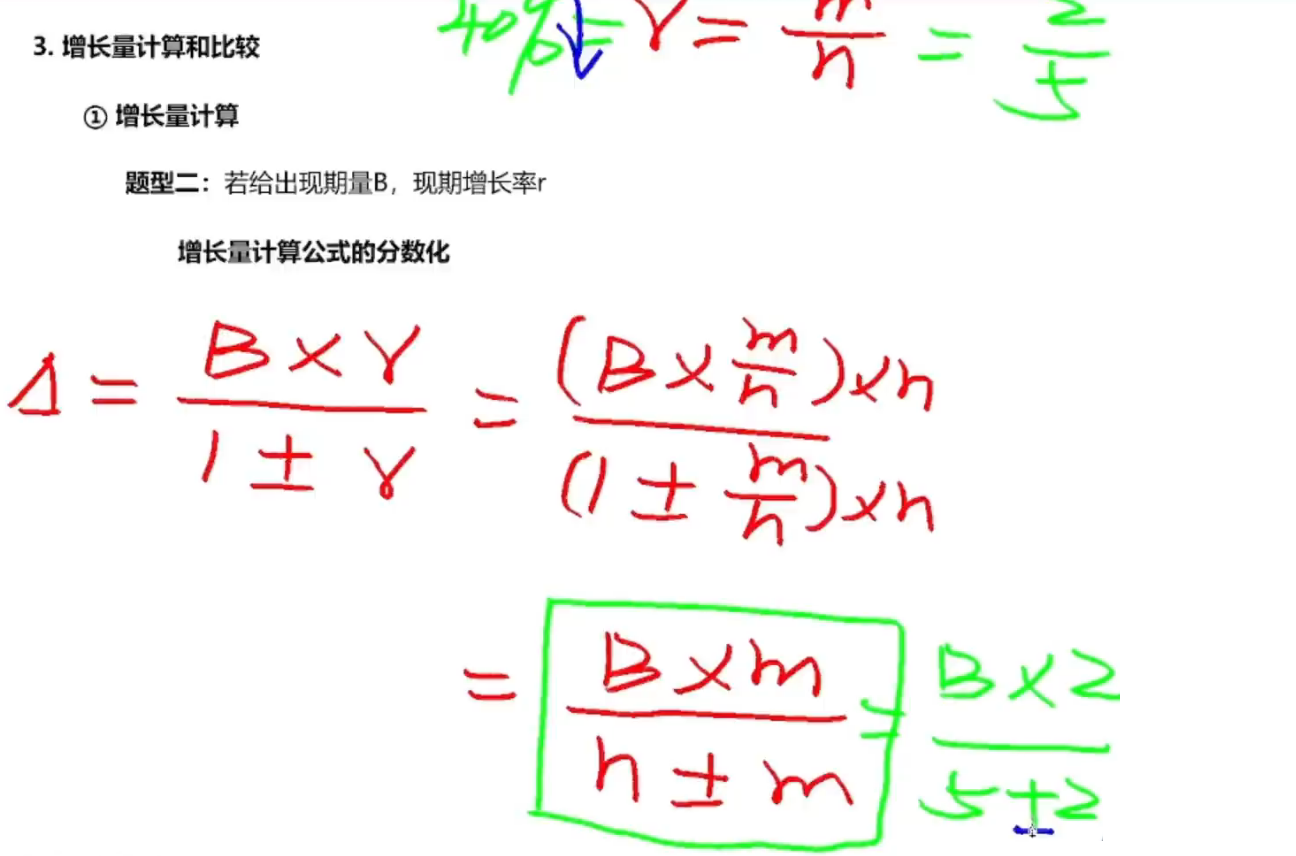 40%= r = m/n = 2/5
3. 增长量计算和比较
① 增长量计算
题型二：若给出现期量B，现期增长率r
增长量计算公式的分数化
Δ = B×r / 1±r = (B×m/n)×n / (1±m/n)×n
= B×m / n±m = B×2 / 5±2